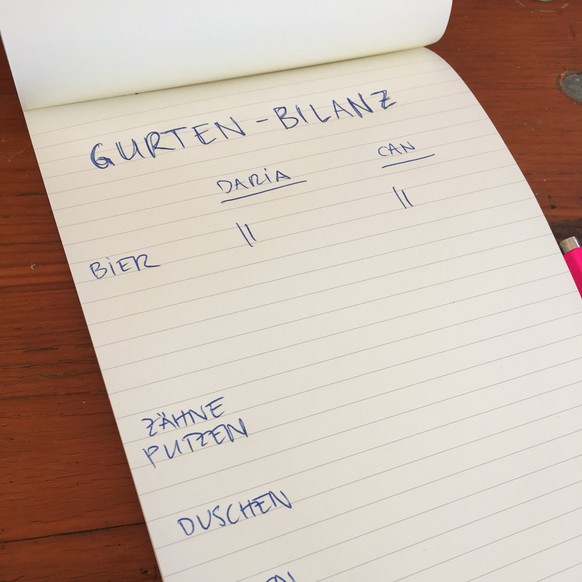 GURTEN-BILANZ
DARiA CAN
BiER || ||
ZÄHNE
PUTZEN
DUSCHEN